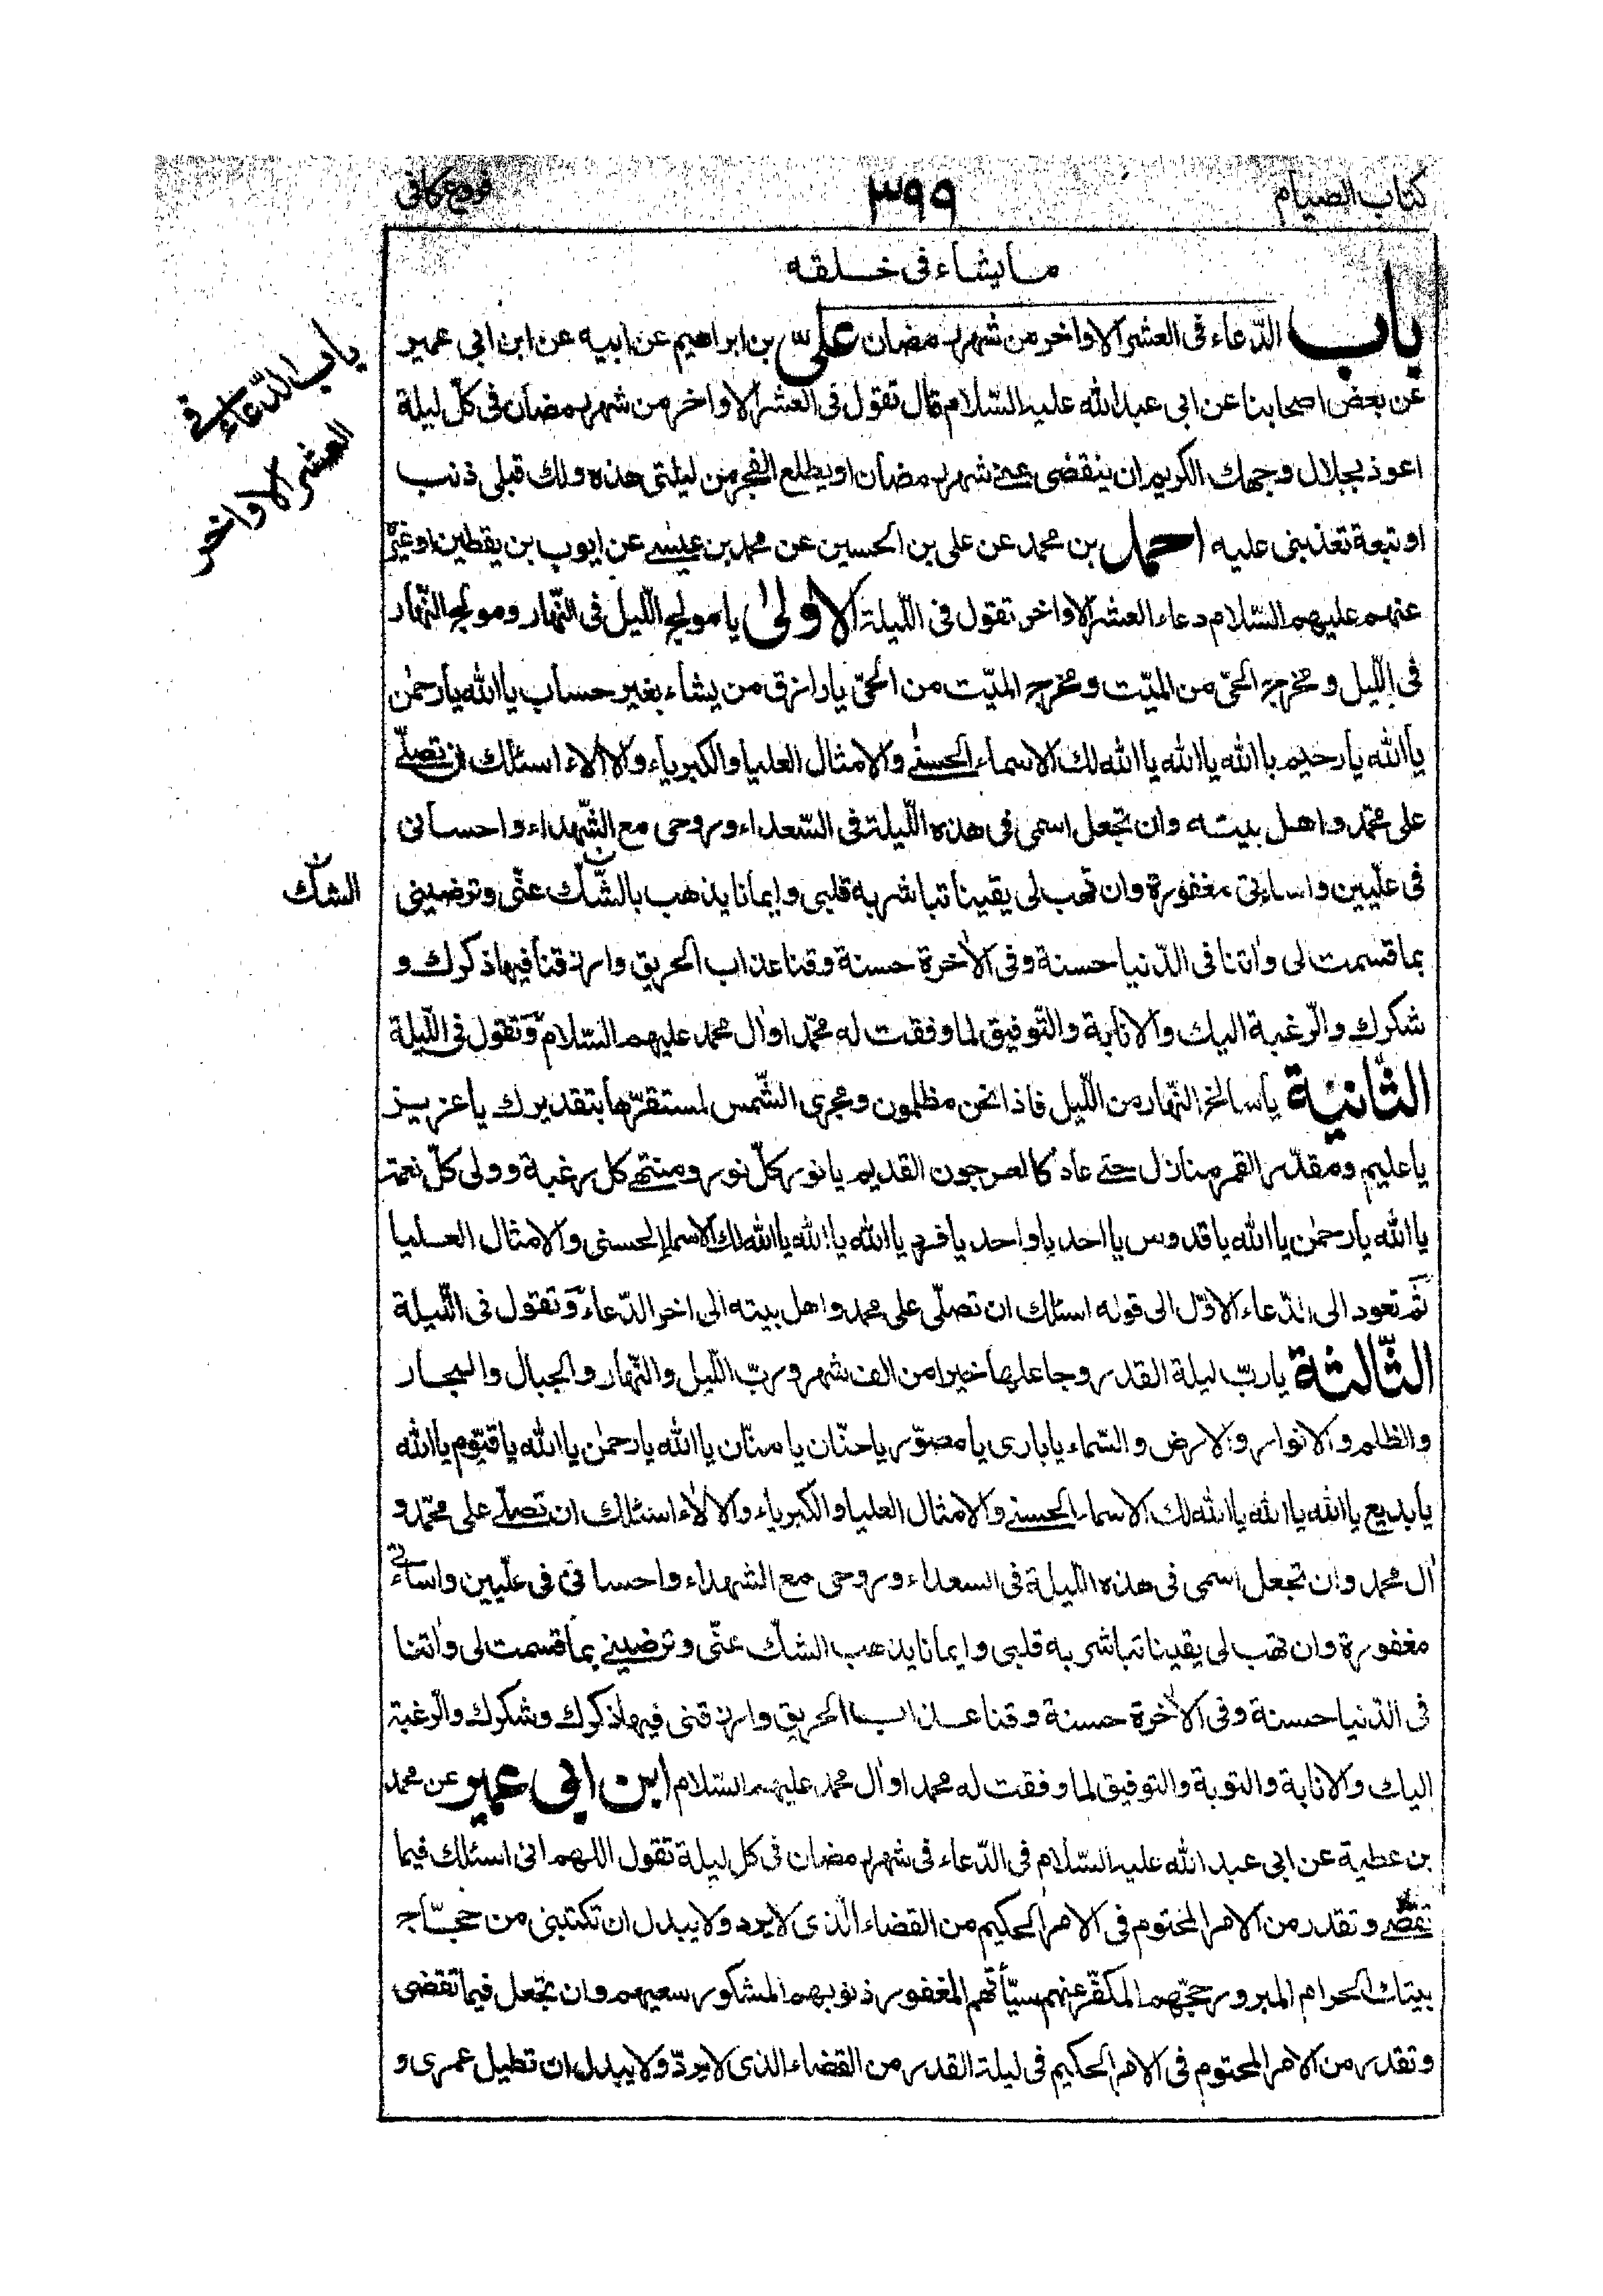 كتاب الصيام
٣٩٩
فروع كافى
ما يشاء فى خلقه
باب الدّعاء فى العشر الاواخر من شهر رمضان علىّ بن ابراهيم عن ابيه عن ابن ابى عمير
عن بعض اصحابنا عن ابى عبد الله عليه السّلام قال تقول فى العشر الاواخر من شهر رمضان فى كلّ ليلة
اعوذ بجلال وجهك الكريم ان ينقضى عنى شهر رمضان او يطلع الفجر من ليلتى هذه ولك قبلى ذنب
او تبعة تعذبنى عليه احمد بن محمد عن على بن الحسين عن محمد بن عيسى عن ايوب بن يقطين او غيره
عنهم عليهم السّلام دعاء العشر الاواخر تقول فى اللّيلة الاولىٰ يا مولج اللّيل فى النّهار ومولج النّهار
فى اللّيل ومخرج الحىّ من الميّت ومخرج الميّت من الحىّ يا رازق من يشاء بغير حساب يا الله يا رحمٰن
يا الله يا رحيم يا الله يا الله يا الله لك الاسماء الحسنى والامثال العليا والكبرياء والالاء اسئلك ان تصلّى
على محمّد واهل بيته وان تجعل اسمى فى هذه اللّيلة فى السّعداء وروحى مع الشّهداء واحسانى
فى علّيين واساءتى مغفورة وان تهب لى يقينا تباشر به قلبى وايمانا يذهب بالشّكّ عنّى وترضينى
بما قسمت لى واٰتنا فى الدّنيا حسنة وفى الاٰخرة حسنة وقنا عذاب الحريق وارزقنا فيها ذكرك و
شكرك والرّغبة اليك والانابة والتّوفيق لما وفقت له محمّدا واٰل محمد عليهم السّلام وتقول فى اللّيلة
الثّانية يا سالخ النّهار من اللّيل فاذا نحن مظلمون ومجرى الشّمس لمستقرّها بتقديرك يا عزيز
يا عليم ومقدّر القمر منازل حتى عاد كالعرجون القديم يا نور كلّ نور ومنتهى كل رغبة وولى كلّ نعمة
يا الله يا رحمٰن يا الله يا قدوس يا احد يا واحد يا فرد يا الله يا الله يا الله لك الاسماء الحسنى والامثال العليا
ثمّ تعود الى الدّعاء الاوّل الى قوله اسئلك ان تصلّى على محمد واهل بيته الى اخر الدّعاء وتقول فى اللّيلة
الثّالثة يا ربّ ليلة القدر وجاعلها خيرا من الف شهر وربّ اللّيل والنّهار والجبال والبحار
والظلم والانوار والارض والسّماء يا بارى يا مصوّر يا حنّان يا منّان يا الله يا رحمٰن يا الله يا قيّوم يا الله
يا بديع يا الله يا الله يا الله لك الاسماء الحسنى والامثال العليا والكبرياء والالاء اسئلك ان تصلّى على محمّد و
اٰل محمد وان تجعل اسمى فى هذه اللّيلة فى السعداء وروحى مع الشهداء واحسانى فى علّيين واساءتى
مغفورة وان تهب لى يقينا تباشر به قلبى وايمانا يذهب الشكّ عنّى وترضينى بما قسمت لى واٰتنا
فى الدّنيا حسنة وفى الاٰخرة حسنة وقنا عذاب الحريق وارزقنى فيها ذكرك وشكرك والرّغبة
اليك والانابة والتوبة والتوفيق لما وفقت له محمدا واٰل محمد عليهم السّلام ابن ابى عمير عن محمد
بن عطية عن ابى عبد الله عليه السّلام فى الدّعاء فى شهر رمضان فى كل ليلة تقول اللهم انى اسئلك فيما
تقضى وتقدر من الامر المحتوم فى الامر الحكيم من القضاء الّذى لا يرد ولا يبدل ان تكتبنى من حجّاج
بيتك الحرام المبرور حجّهم المكفّر عنهم سيّأتهم المغفور ذنوبهم المشكور سعيهم وان تجعل فيما تقضى
وتقدر من الامر المحتوم فى الامر الحكيم فى ليلة القدر من القضاء الذى لا يردّ ولا يبدل ان تطيل عمرى و
باب الدّعاء فى
العشر الاواخر
الشكّ